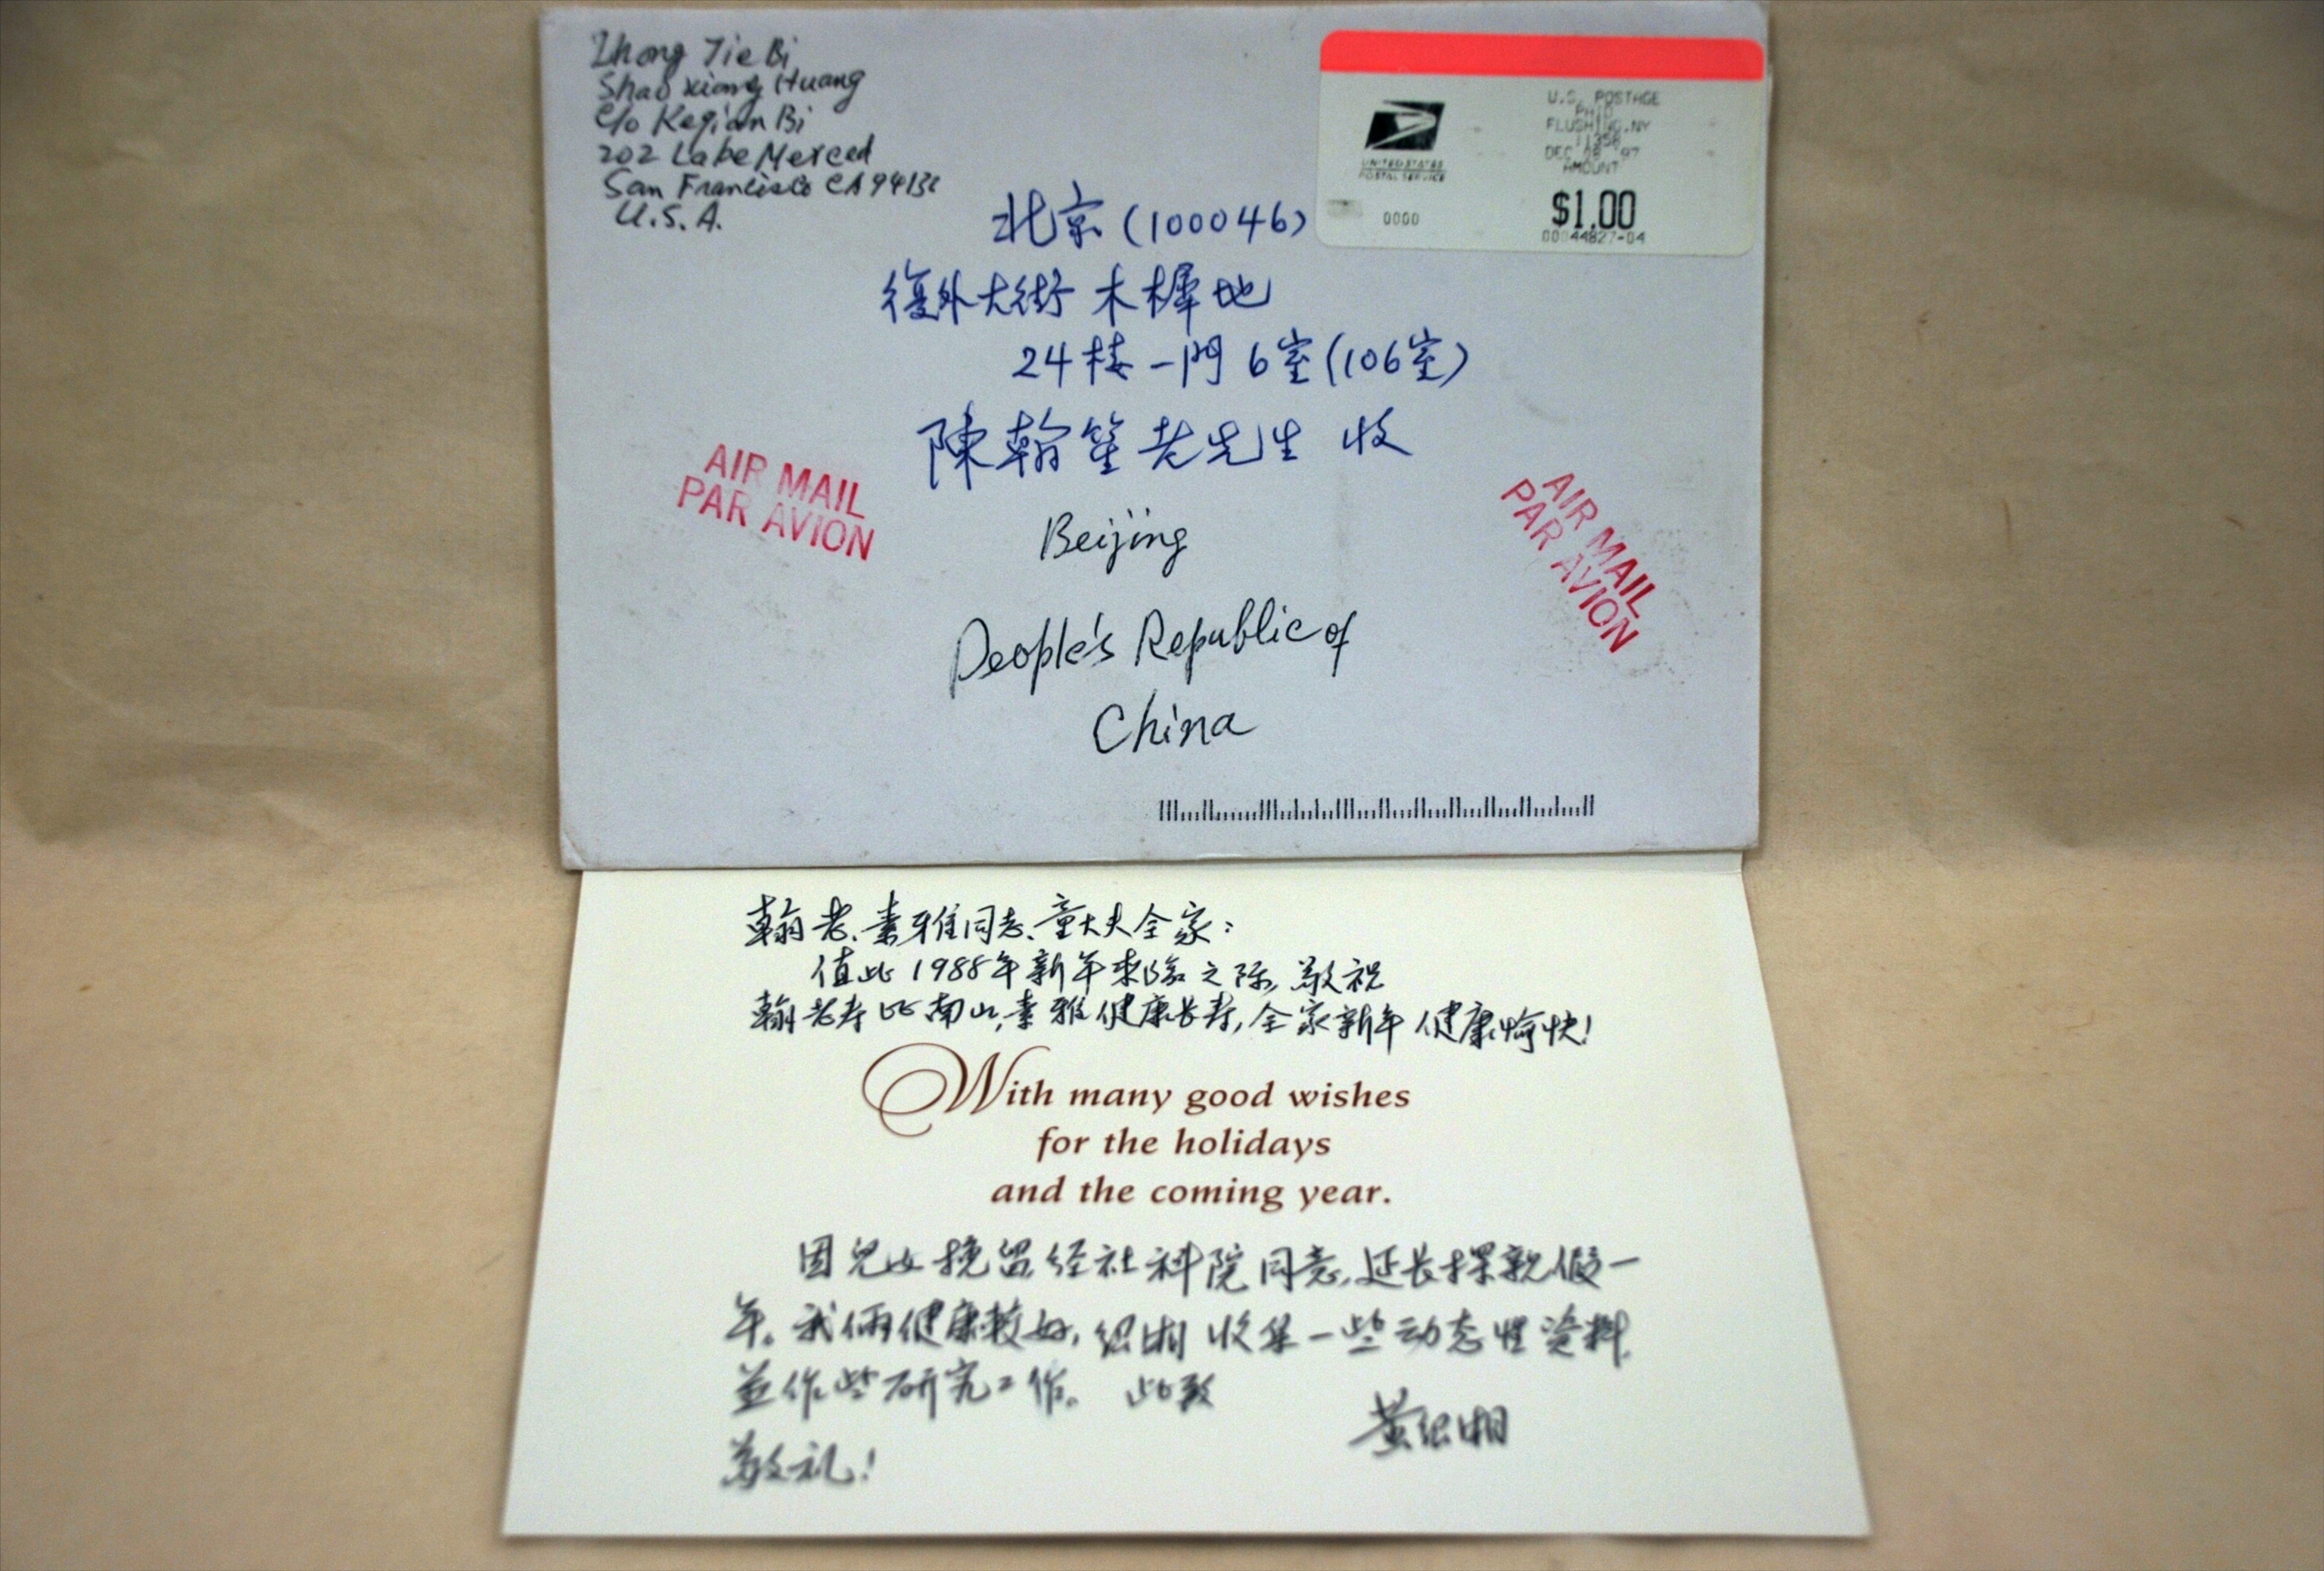 Zhong Jie Bi
Shao xiang Huang
c/o Keqian Bi
202 Lake Merced
San Francisco CA 9413
U.S.A.
U.S. POSTAGE
PAID
FLUSHING, NY
DEC 97
AMOUNT
$1.00
UNITED STATES
POSTAL SERVICE
0000
北京(100046)
復外大街 木樨地
24楼一門6室(106室)
陳翰笙老先生 收
AIR MAIL
PAR AVION
AIR MAIL
PAR AVION
Beijing
People's Republic of
China
翰老、素雅同志、童大夫全家:
值此1988年新年来临之际,敬祝
翰老寿比南山,素雅健康长寿,全家新年健康愉快!
With many good wishes
for the holidays
and the coming year.
因兒女挽留,经社科院同意,延长探親假一
年。我俩健康较好,绍湘收集一些动态性资料,
並作些研究工作。 此致
敬礼!
黄绍湘